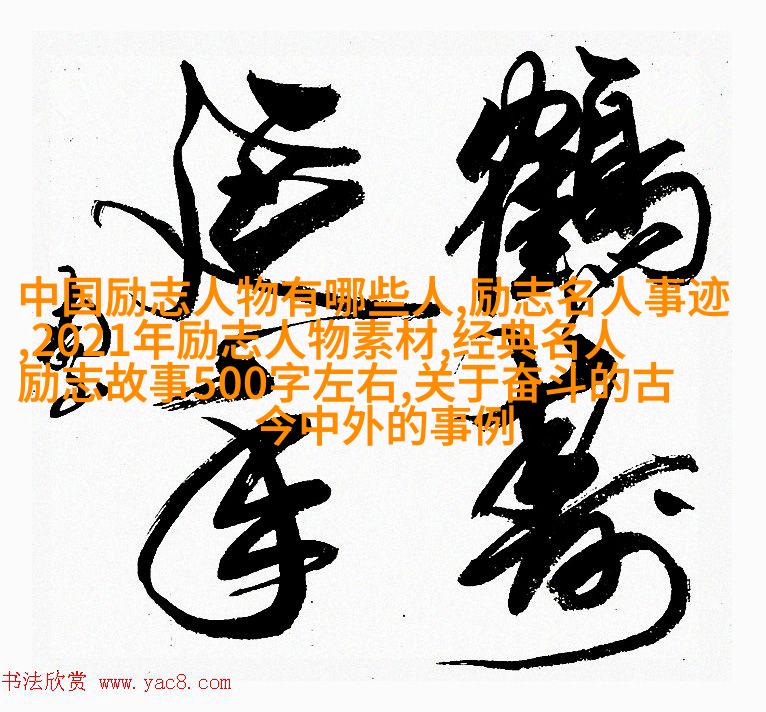 鹤寿
延年
中国励志人物有哪些人,励志名人事迹
,2021年励志人物素材,经典名人
励志故事500字左右,关于奋斗的古
今中外的事例
书法欣赏 www.yac8.com